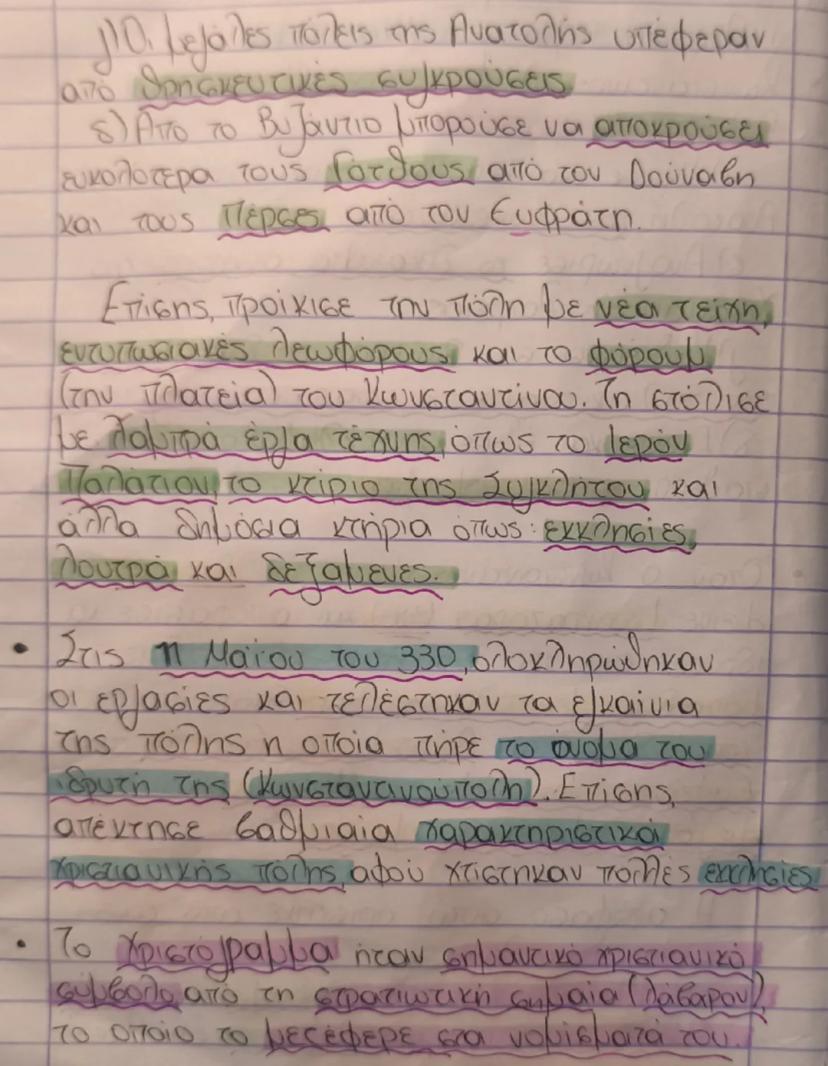 γ) Οι μεγάλες πόλεις της Ανατολής υπέφεραν
από θρησκευτικές συγκρούσεις
δ) Από το Βυζάντιο μπορούσε να αποκρούσει
ευκολότερα τους Γότθους από τον Δούναβη
και τους Πέρσες από τον Ευφράτη.
Επίσης, προίκισε την πόλη με νέα τείχη,
εντυπωσιακές λεωφόρους και το φόρουμ
(την πλατεία) του Κωνσταντίνου. Τη στόλισε
με λαμπρά έργα τέχνης, όπως το Ιερόν
Παλάτιον, το κτίριο της Συγκλήτου και
άλλα δημόσια κτήρια όπως: εκκλησίες,
λουτρά και δεξαμενές.
• Στις 11 Μαΐου του 330, ολοκληρώθηκαν
οι εργασίες και τελέστηκαν τα εγκαίνια
της πόλης η οποία πήρε το όνομα του
ιδρυτή της (Κωνσταντινούπολη). Επίσης,
απέκτησε βαθμιαία χαρακτηριστικά
χριστιανικής πόλης, αφού χτίστηκαν πολλές εκκλησίες
• Το Χριστόγραμμα ήταν σημαντικό χριστιανικό
σύμβολο από τη στρατιωτική σημαία (λάβαρον),
το οποίο το μετέφερε στα νομίσματά του.